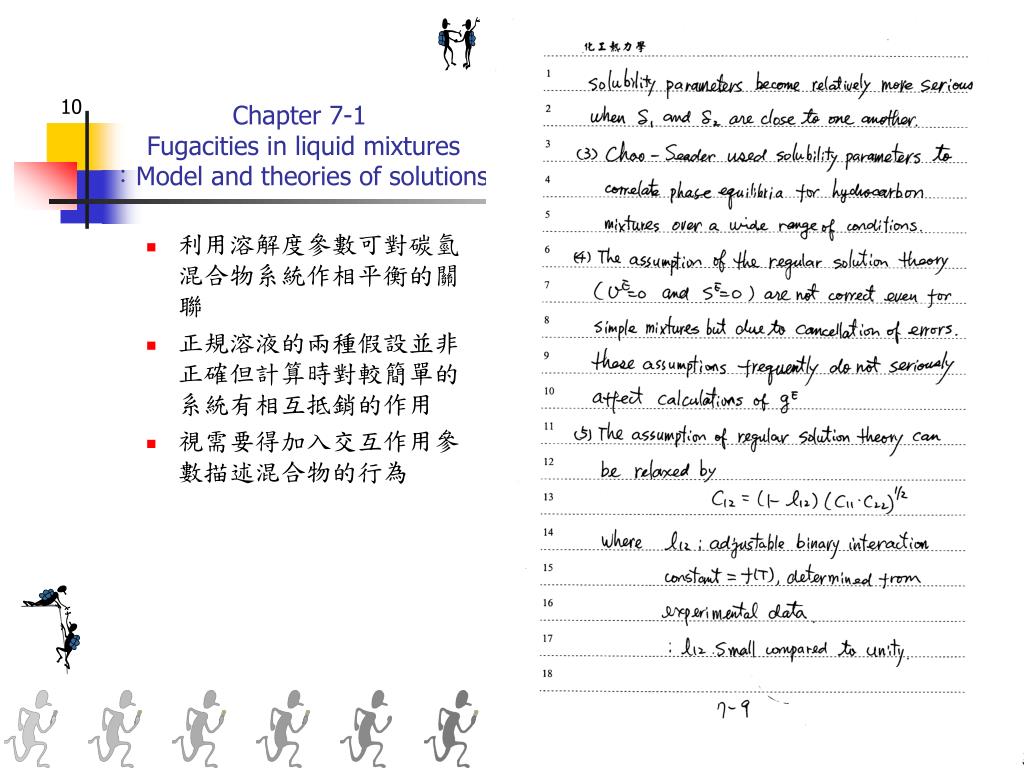 10
Chapter 7-1
Fugacities in liquid mixtures
: Model and theories of solutions
利用溶解度參數可對碳氫
混合物系統作相平衡的關
聯
正規溶液的兩種假設並非
正確但計算時對較簡單的
系統有相互抵銷的作用
視需要得加入交互作用參
數描述混合物的行為
化工熱力學
1 solubility parameters become relatively more serious
2 when δ₁ and δ₂ are close to one another.
3 (3) Chao-Seader used solubility parameters to
4 correlate phase equilibria for hydrocarbon
5 mixtures over a wide range of conditions.
6 (4) The assumption of the regular solution theory
7 (Uᴱ=0 and Sᴱ=0) are not correct even for
8 simple mixtures but due to cancellation of errors.
9 these assumptions frequently do not seriously
10 affect calculations of gᴱ
11 (5) The assumption of regular solution theory can
12 be relaxed by
13 C₁₂ = (1- l₁₂) (C₁₁·C₂₂)^1/2
14 where l₁₂ : adjustable binary interaction
15 constant = f(T), determined from
16 experimental data.
17 : l₁₂ small compared to unity.
18
7-9